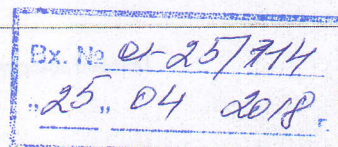 Вх. № 01-25/714
„25„ 04 2018 г.